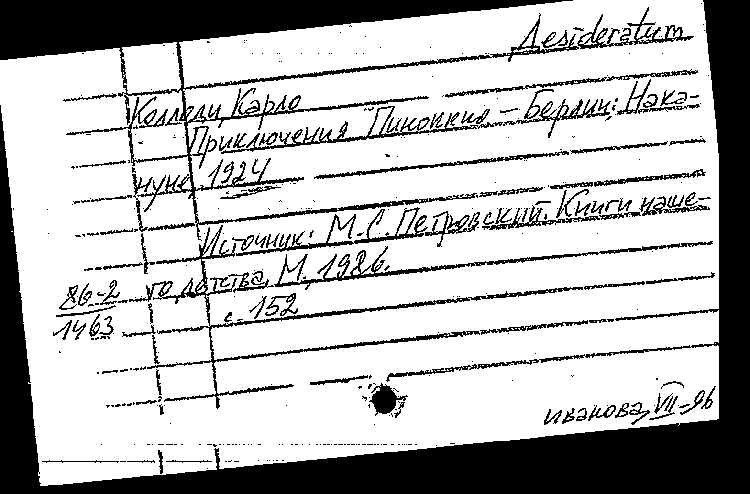 Desideratum
Коллоди, Карло
Приключения Пиноккио – Берлин: Нака-
нуне, 1924
Источник: М.С. Петровский. Книги наше-
го детства. М., 1986.
с. 152
86-2
1463
Иванова, VII-96